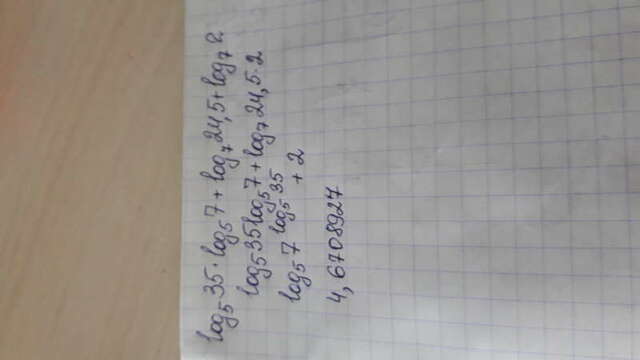 log₅35·log₅7+log₇24,5+log₇2
log₅35log₅7+log₇24,5·2
log₅7^log₅35 + 2
4,6708927